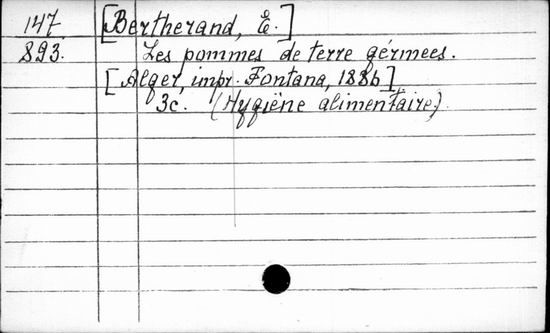 147 [Bertherand, E.]
893. Les pommes de terre gérmees.
[Alger, impr. Fontana, 1886]
3c. (Hygiène alimentaire)